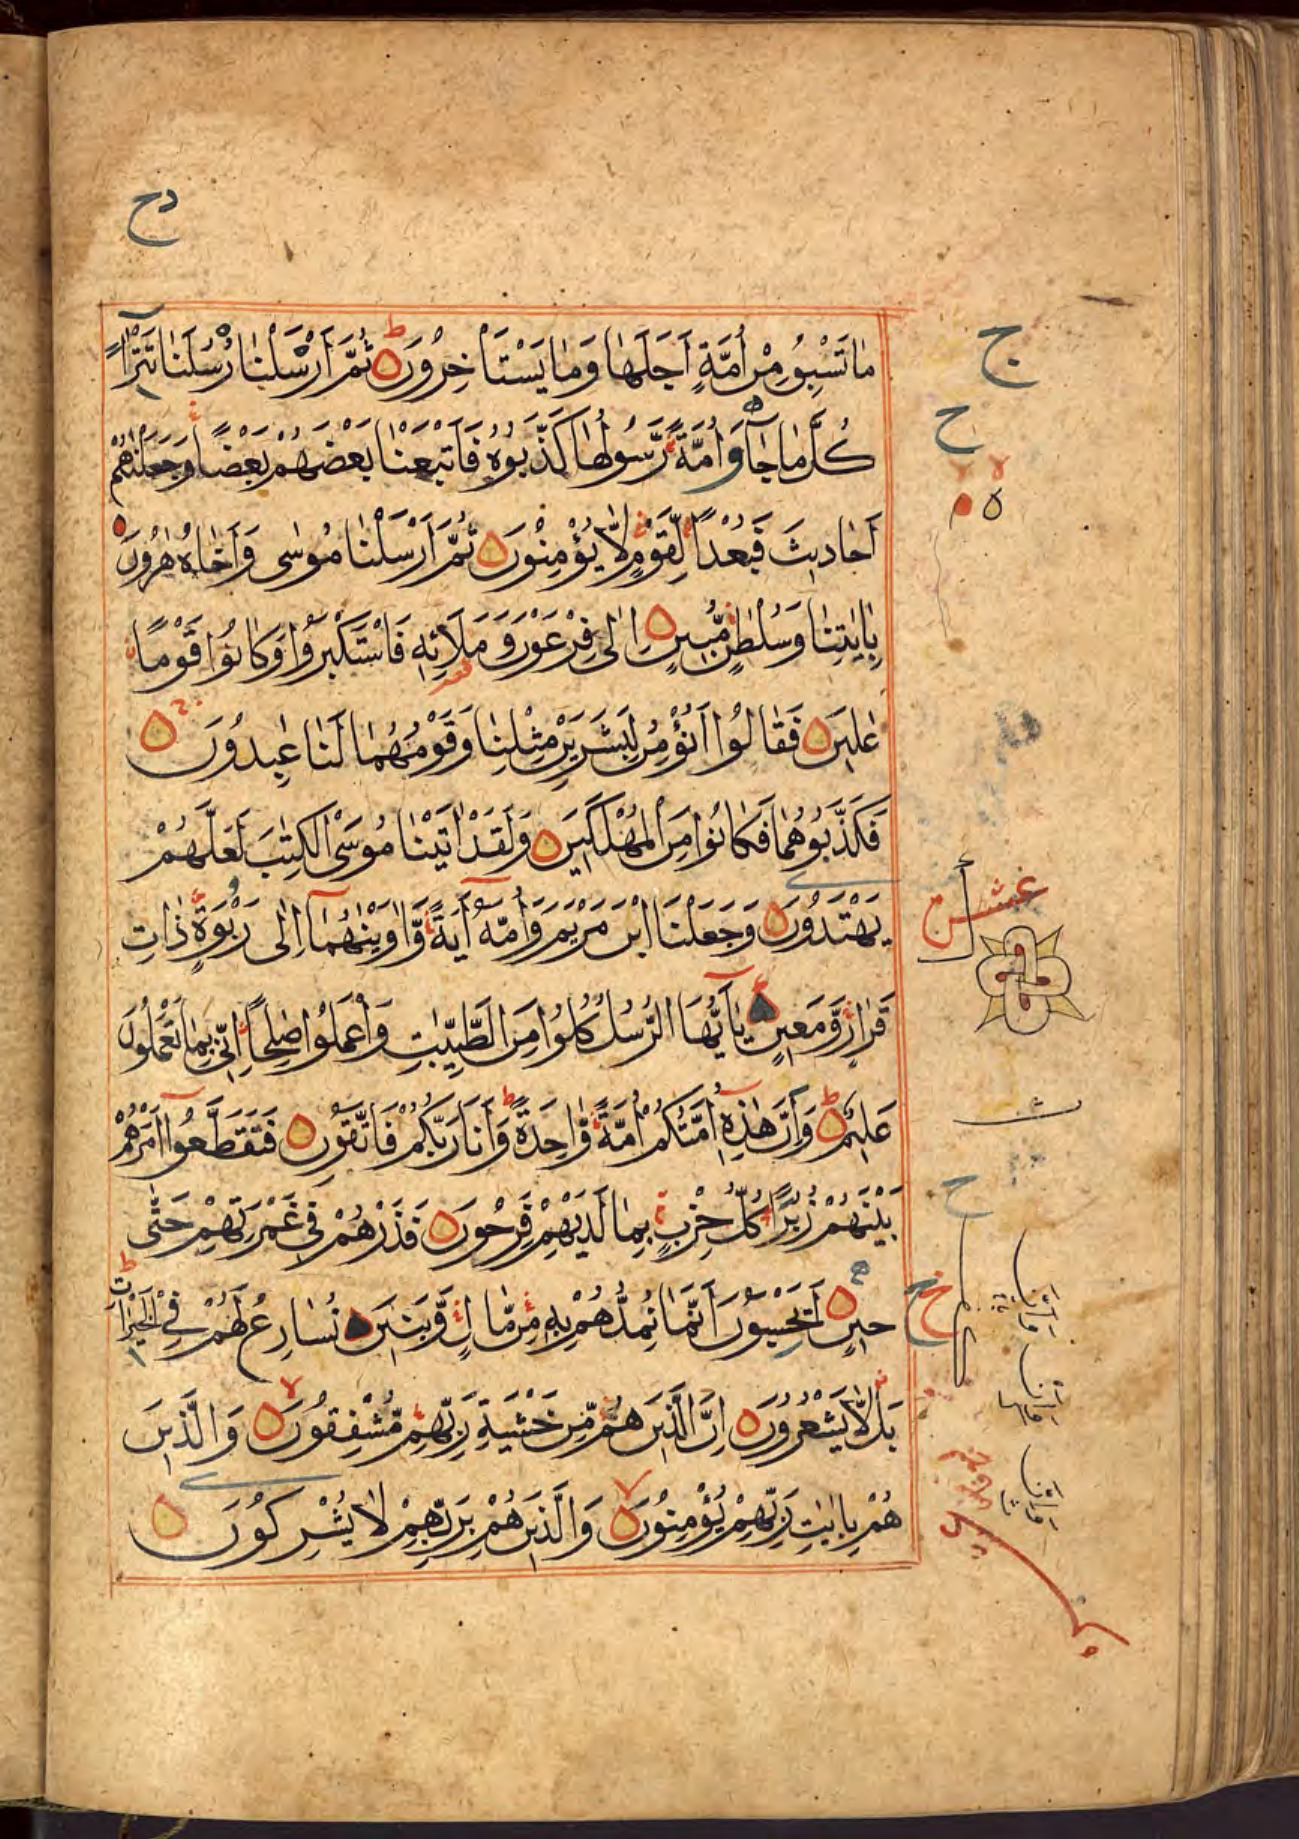 مَا تَسْبِقُ مِنْ اُمَّةٍ اَجَلَهَا وَمَا يَسْتَاْخِرُوْنَ ثُمَّ اَرْسَلْنَا رُسُلَنَا تَتْرًا
كُلَّ مَا جَآءَ اُمَّةً رَّسُولُهَا كَذَّبُوْهُ فَاَتْبَعْنَا بَعْضَهُمْ بَعْضًا وَجَعَلْنٰهُمْ
اَحَادِيثَ فَبُعْدًا لِّقَوْمٍ لَّا يُؤْمِنُوْنَ ثُمَّ اَرْسَلْنَا مُوسٰى وَاَخَاهُ هٰرُوْنَ
بِاٰيٰتِنَا وَسُلْطٰنٍ مُّبِينٍ اِلٰى فِرْعَوْنَ وَمَلَا۟ئِهٖ فَاسْتَكْبَرُوْا وَكَانُوْا قَوْمًا
عَالِينَ فَقَالُوْا اَنُؤْمِنُ لِبَشَرَيْنِ مِثْلِنَا وَقَوْمُهُمَا لَنَا عٰبِدُوْنَ
فَكَذَّبُوْهُمَا فَكَانُوْا مِنَ الْمُهْلَكِينَ وَلَقَدْ اٰتَيْنَا مُوسَى الْكِتٰبَ لَعَلَّهُمْ
يَهْتَدُوْنَ وَجَعَلْنَا ابْنَ مَرْيَمَ وَاُمَّهٗ اٰيَةً وَّاٰوَيْنٰهُمَآ اِلٰى رَبْوَةٍ ذَاتِ
قَرَارٍ وَّمَعِينٍ يٰاَيُّهَا الرُّسُلُ كُلُوْا مِنَ الطَّيِّبٰتِ وَاعْمَلُوْا صٰلِحًا اِنِّي بِمَا تَعْمَلُوْنَ
عَلِيمٌ وَاَنَّ هٰذِهٖ اُمَّتُكُمْ اُمَّةً وَّاحِدَةً وَاَنَا رَبُّكُمْ فَاتَّقُوْنِ فَتَقَطَّعُوْا اَمْرَهُمْ
بَيْنَهُمْ زُبُرًا كُلُّ حِزْبٍ بِمَا لَدَيْهِمْ فَرِحُوْنَ فَذَرْهُمْ فِي غَمْرَتِهِمْ حَتّٰى
حِينٍ اَيَحْسَبُوْنَ اَنَّمَا نُمِدُّهُمْ بِهٖ مِنْ مَّالٍ وَّبَنِينَ نُسَارِعُ لَهُمْ فِي الْخَيْرَاتِ
بَلْ لَّا يَشْعُرُوْنَ اِنَّ الَّذِينَ هُمْ مِّنْ خَشْيَةِ رَبِّهِمْ مُّشْفِقُوْنَ وَالَّذِينَ
هُمْ بِاٰيٰتِ رَبِّهِمْ يُؤْمِنُوْنَ وَالَّذِينَ هُمْ بِرَبِّهِمْ لَا يُشْرِكُوْنَ